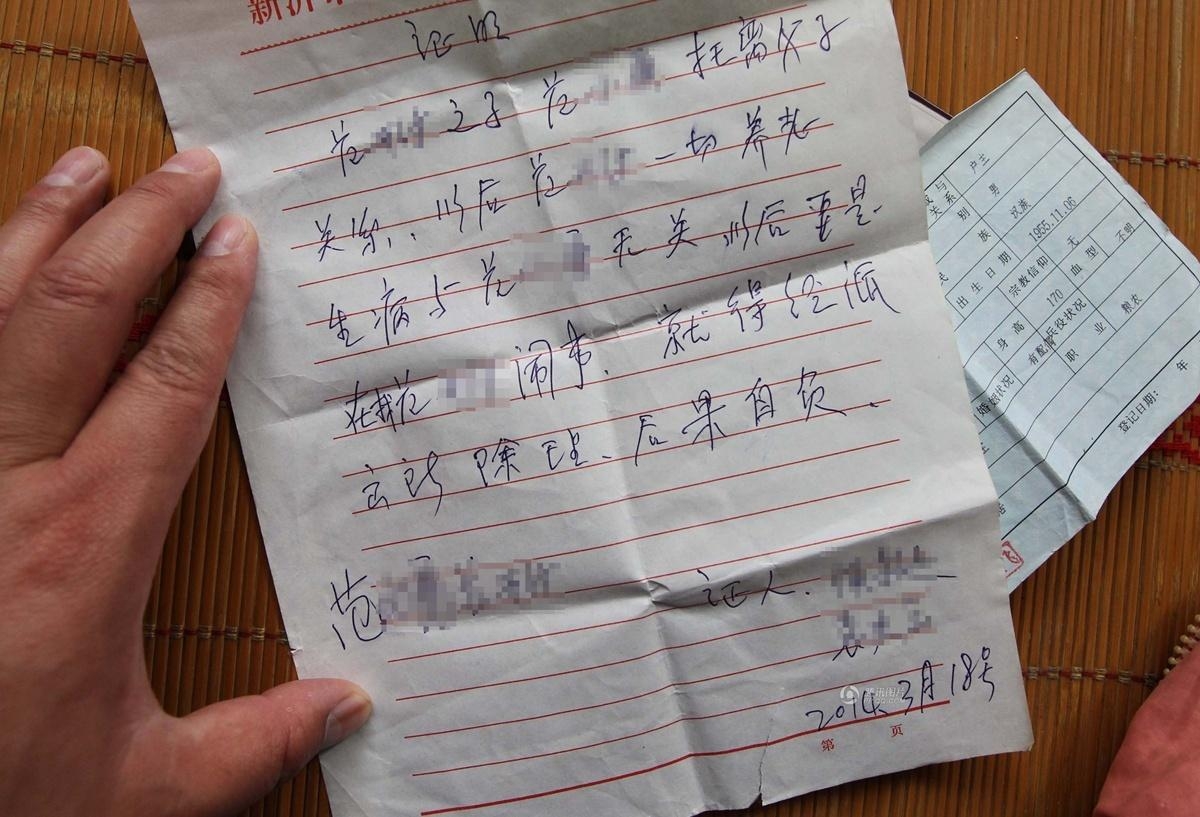 新沂
证明
范 之子 范 托离父子
关系、以后范 一切养老
生病与范 无关以后要是
在我范 闹事、就得经派
立所除理、后果自负、
范
证人、
2014年3月18号
第 页
腾讯图片
户主
与
关系
别 男
族 汉族
出生日期 1955.11.06
宗教信仰 无
身高 170 血型 不明
婚姻状况 有配偶 兵役状况
职业 粮农
登记日期： 年